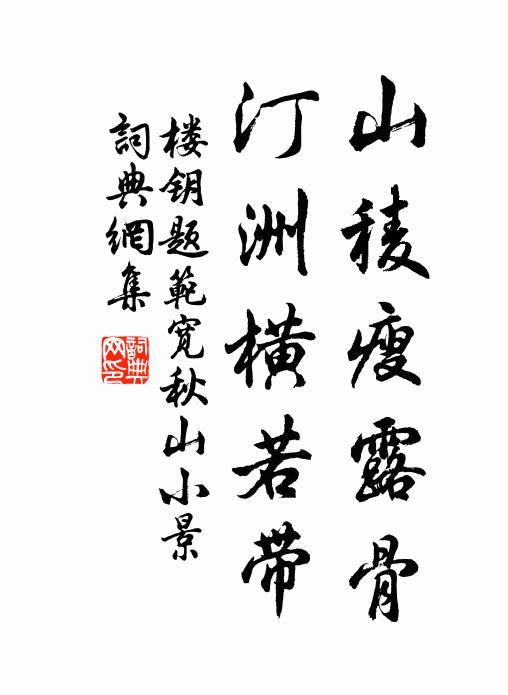 山稜瘦露骨
汀洲横若带
楼钥题範宽秋山小景
詞典網集
詞典
网印